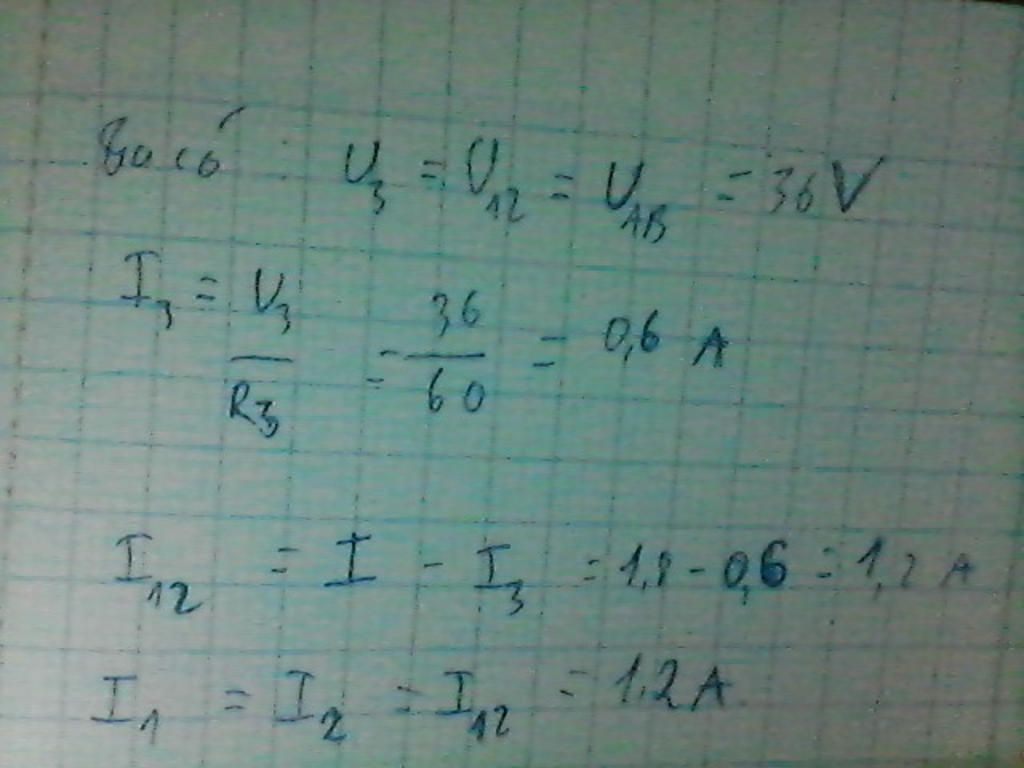 Ta có : U3 = U12 = UAB = 36 V
I3 = U3 / R3 = 36 / 60 = 0,6 A
I12 = I - I3 = 1,8 - 0,6 = 1,2 A
I1 = I2 = I12 = 1,2 A